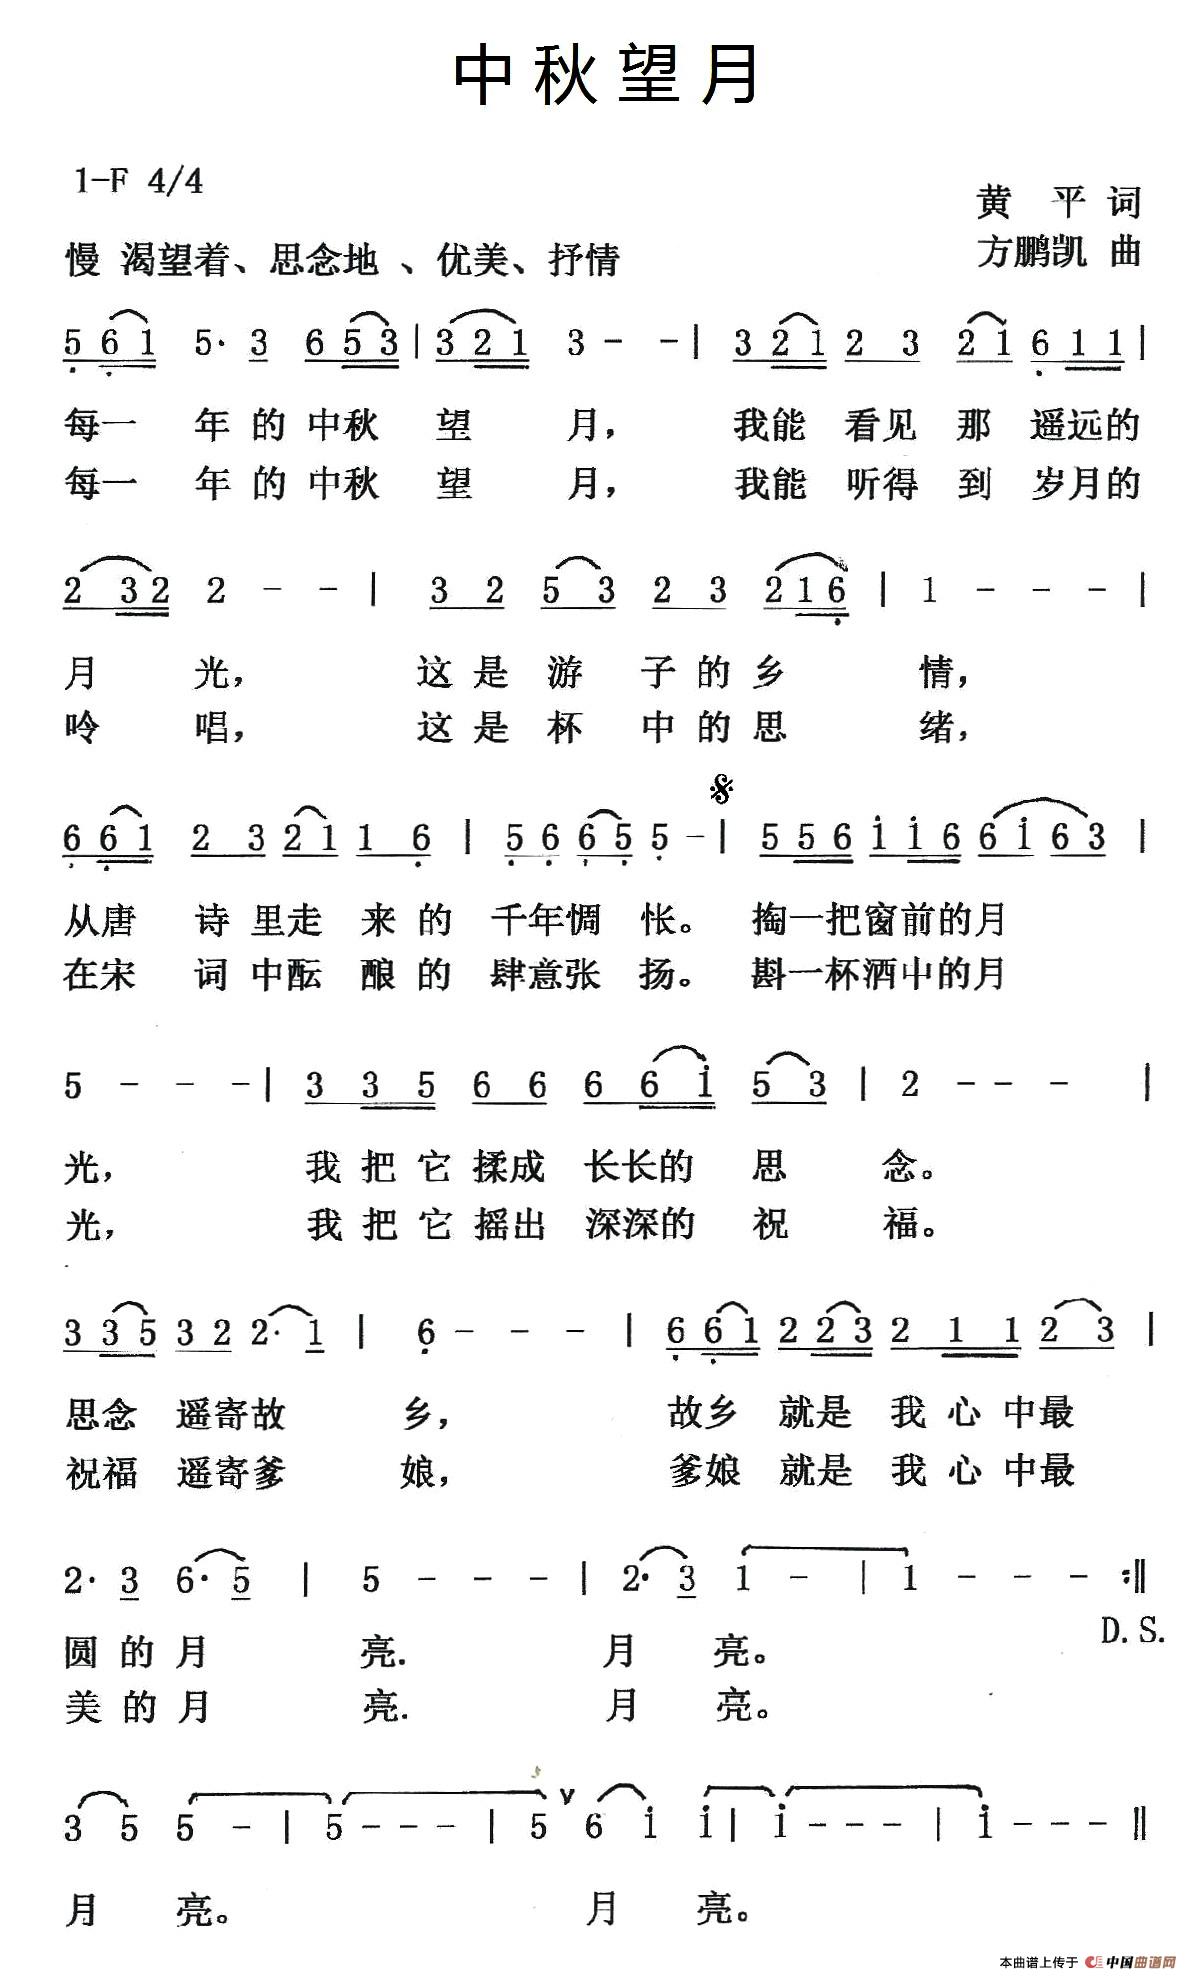 中秋望月
1-F 4/4
黄 平 词
慢 渴望着、思念地 、优美、抒情
方鹏凯 曲
5 6 1 5· 3 6 5 3 | 3 2 1 3 - - | 3 2 1 2 3 2 1 6 1 1 |
每一 年 的 中秋 望 月， 我能 看见 那 遥远的
每一 年 的 中秋 望 月， 我能 听得 到 岁月的
2 3 2 2 - - | 3 2 5 3 2 3 2 1 6 | 1 - - - |
月 光， 这 是 游 子 的 乡 情，
呤 唱， 这 是 杯 中 的 思 绪，
6 6 1 2 3 2 1 1 6 | 5 6 6 5 5 - | 5 5 6 i i 6 6 i 6 3 |
从唐 诗 里走 来 的 千年惆 怅。 掏一把窗前的月
在宋 词 中酝 酿 的 肆意张 扬。 斟一杯酒中的月
5 - - - | 3 3 5 6 6 6 6 i 5 3 | 2 - - - |
光， 我 把 它 揉成 长长的 思 念。
光， 我 把 它 摇出 深深的 祝 福。
3 3 5 3 2 2· 1 | 6 - - - | 6 6 1 2 2 3 2 1 1 2 3 |
思念 遥寄故 乡， 故乡 就是 我 心 中最
祝福 遥寄爹 娘， 爹娘 就是 我 心 中最
2· 3 6· 5 | 5 - - - | 2· 3 1 - | 1 - - - :‖
D.S.
圆 的 月 亮. 月 亮。
美 的 月 亮. 月 亮。
3 5 5 - | 5 - - - | 5 V 6 i i | i - - - | i - - - ‖
月 亮。 月 亮。
本曲谱上传于 中国曲谱网